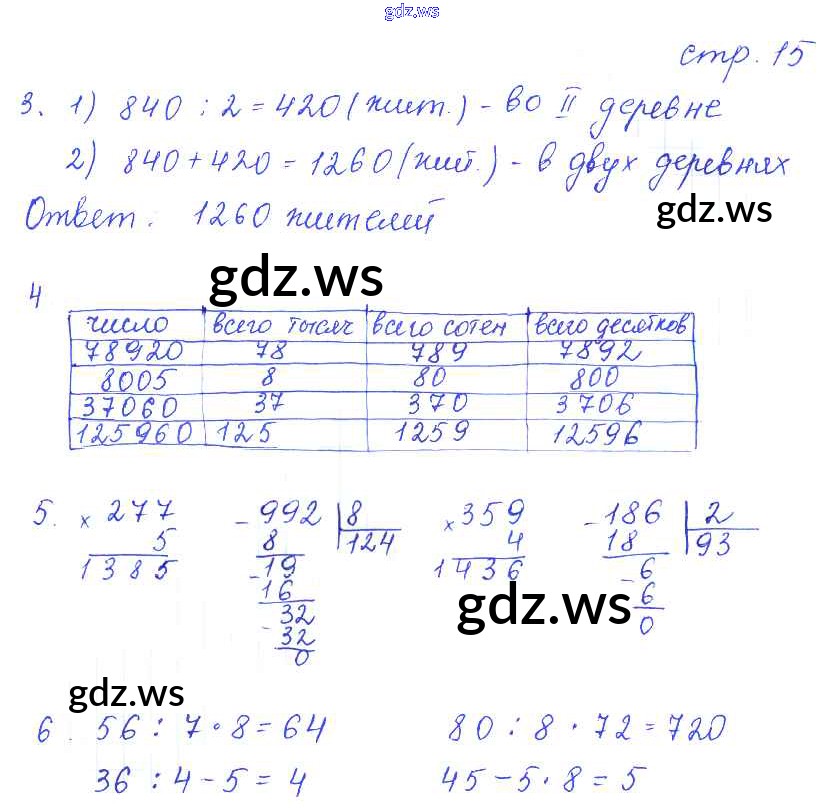 gdz.ws
стр. 15
3. 1) 840 : 2 = 420 (жит.) - во II деревне
2) 840 + 420 = 1260 (жит.) - в двух деревнях
Ответ: 1260 жителей
gdz.ws
gdz.ws
4
число всего тысяч всего сотен всего десятков
78920 78 789 7892
8005 8 80 800
37060 37 370 3706
125960 125 1259 12596
5. × 277 - 992 | 8 × 359 - 186 | 2
5 8 124 4 18 93
1385 - 19 1436 - 6
16 6
- 32 0
32
0
gdz.ws
gdz.ws
6. 56 : 7 · 8 = 64 80 : 8 · 72 = 720
36 : 4 - 5 = 4 45 - 5 · 8 = 5